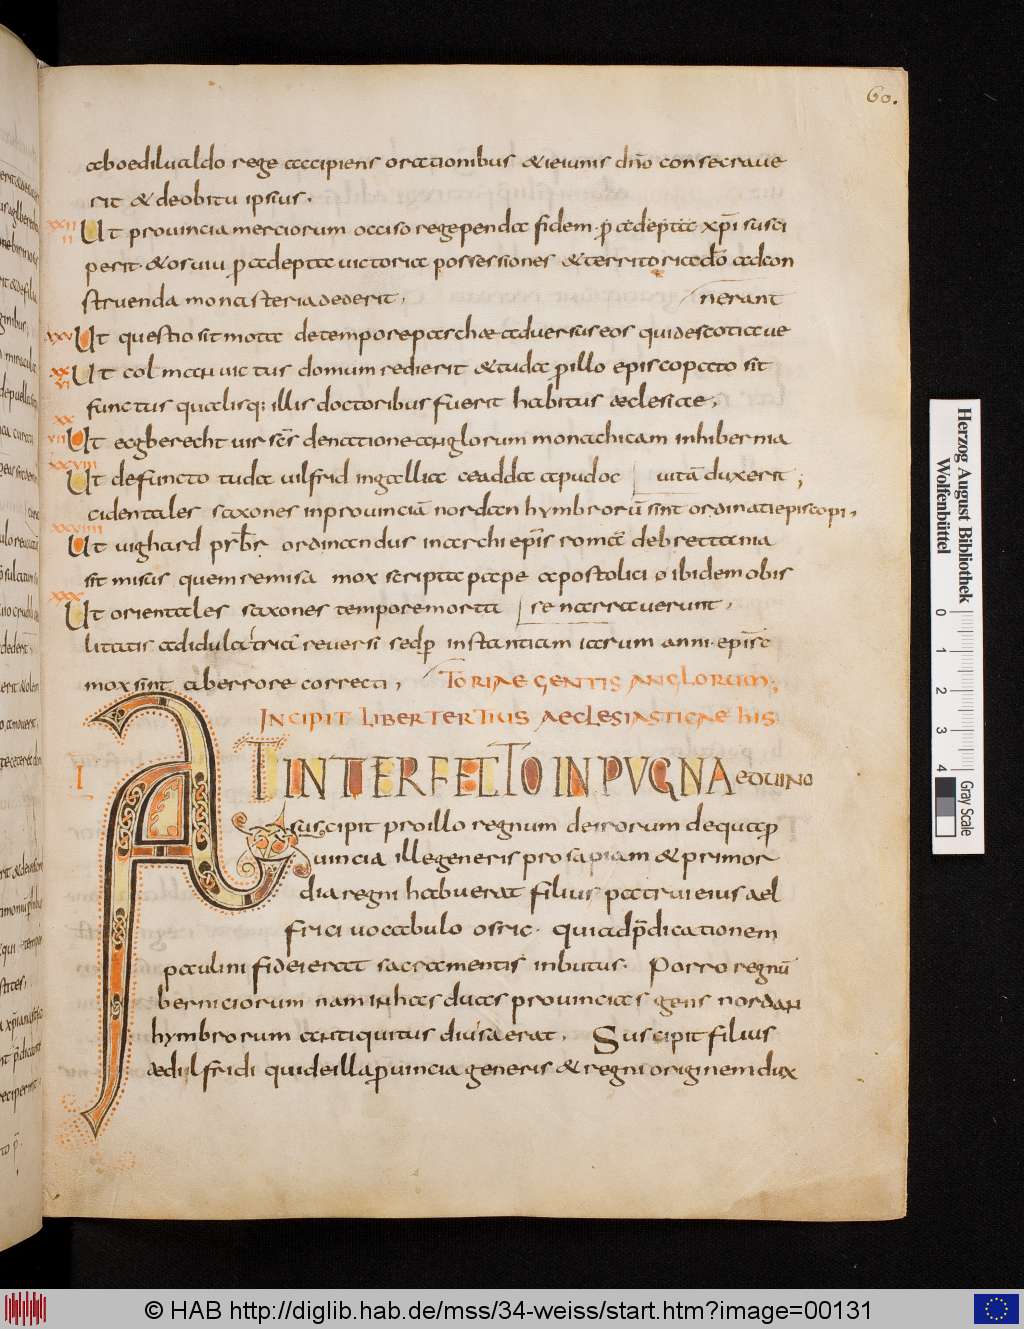 60.
aboediluualdo rege accipiens orationibus & ieiuniis dn̄o consecraue
rit & deobitu ipsius.
XXIIII Ut prouincia merciorum occiso rege penda fidem p̄ adeptā xp̄i susci
perit. & osuiu p adepta uictoria possessiones & territoria dō ad con
struenda monasteria dederit. nerant
XXV Ut questio sit mota de tempore paschæ aduersus eos qui de scotia ue
XXVI Ut colman uictus domum redierit & tuda p illo episcopato sit
functus qualisq; illis doctoribus fuerit habitus æclesiae,
XXVII Ut eagberecht uir sc̄s de natione anglorum monachicam in hibernia
XXVIII Ut defuncto tuda uilfrid in gallia ceadda apud oc uitā duxerit;
cidentales saxones in prouinciā nordan hymbrorū sint ordinati episcopi,
XXVIIII Ut uighard pr̄br ordinandus in archiepīs romā de brettania
sit misus quem remisa mox scripta papæ apostolici o ibidem obis
XXX Ut orientales saxones tempore morta se narrauerunt,
litatis ad idulatriā reuersi sed p instantiam iarum anni epīsc
mox sint ab errore correcti, TORIAE GENTIS ANGLORUM;
INCIPIT LIBER TERTIUS AECLESIASTICAE HIS
I AT INTERFECTO IN PUGNA EDUINO
suscipit pro illo regnum deirorum de qua p
uincia ille generis prosapiam & primor
dia regni habuerat filius patrui eius ael
frici uocabulo osric. qui ad p̄dicationem
paulini fidei erat sacramentis inbutus. Porro regnū
berniciorum nam in has duas prouincias gens nordan
hymbrorum antiquitus diuisa erat. Suscipit filius
ædilfridi qui de illa puincia generis & regni originem dux
Herzog August Bibliothek
Wolfenbüttel
0 1 2 3 4
Gray Scale
© HAB http://diglib.hab.de/mss/34-weiss/start.htm?image=00131